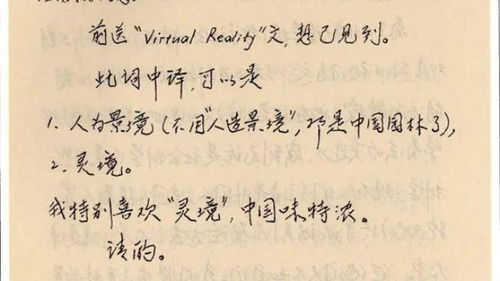 前送“Virtual Reality”文，想已见到。
此词中译，可以是
1. 人为景境（不用“人造景境”，那是中国园林了），
2. 灵境。
我特别喜欢“灵境”，中国味特浓。
请酌。